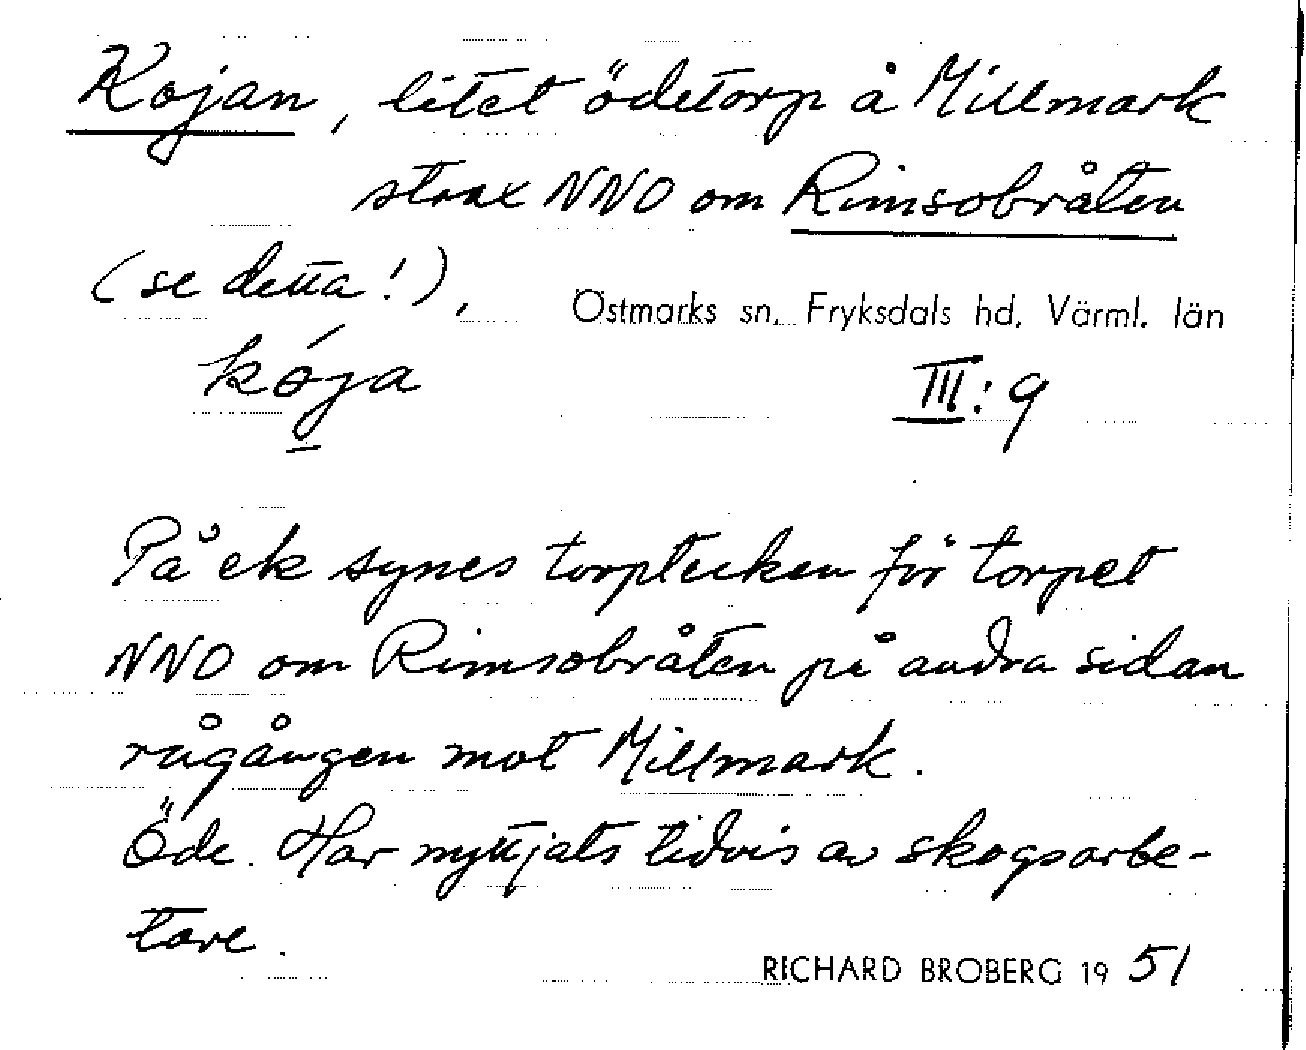 Kojan, litet ödetorp å Millmark
strax NNO om Rimsobråten
(se detta!),
Östmarks sn. Fryksdals hd. Värml. län
kója
III: 9
På ek synes torptecken för torpet
NNO om Rimsobråten på andra sidan
rågången mot Millmark.
Öde. Har nyttjats tidvis av skogsarbe-
tare.
RICHARD BROBERG 19 51